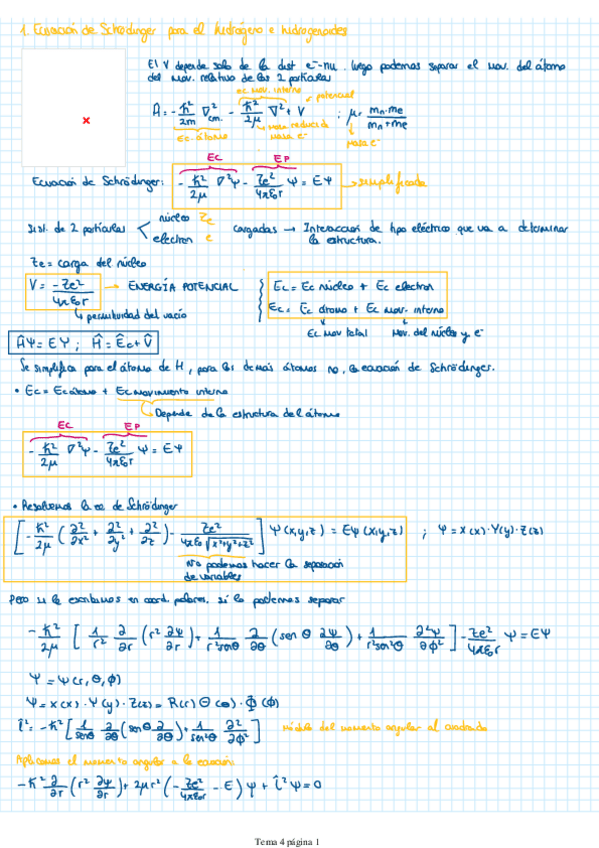 1. Ecuación de Schrödinger para el hidrógeno e hidrogenoides
El V depende solo de la dist e⁻-nu. luego podemos separar el mov. del átomo
del mov. relativo de las 2 partículas
ec. mov. interno
potencial
Ĥ = -ℏ²/2m ∇²cm. - ℏ²/2μ ∇² + V ; μ = mn·me/mn+me
Ec. átomo
masa reducida
masa e⁻
masa e⁻
EC EP
Ecuación de Schrödinger: -ℏ²/2μ ∇²ψ - Ze²/4πε₀r ψ = Eψ → simplificada
Sist. de 2 partículas < núcleo Ze
electron e
cargadas → Interacción de tipo eléctrico que va a determinar
la estructura.
Ze = carga del núcleo
V = -Ze²/4πε₀r → ENERGÍA POTENCIAL
↳ permitividad del vacío
Ec = Ec núcleo + Ec electron
Ec = Ec átomo + Ec mov. interno
Ec mov total
Mov. del núcleo y e⁻
Ĥψ = Eψ ; Ĥ = Êc + V̂
Se simplifica para el átomo de H, para los demás átomos no, la ecuación de Schrödinger.
• Ec = Ec átomo + Ec movimiento interno
↳ Depende de la estructura del átomo
EC EP
-ℏ²/2μ ∇²ψ - Ze²/4πε₀r ψ = Eψ
• Resolvemos la ec de Schrödinger
[-ℏ²/2μ (∂²/∂x² + ∂²/∂y² + ∂²/∂z) - Ze²/4πε₀√x²+y²+z²] ψ(x,y,z) = Eψ(x,y,z) ; ψ = X(x)·Y(y)·Z(z)
No podemos hacer la separación
de variables
Pero si la escribimos en coord. polares, sí la podemos separar
-ℏ²/2μ [1/r² ∂/∂r (r² ∂ψ/∂r) + 1/r²senθ ∂/∂θ (sen θ ∂ψ/∂θ) + 1/r²sen²θ ∂²ψ/∂ϕ²] - Ze²/4πε₀r ψ = Eψ
ψ = ψ(r, θ, ϕ)
ψ = X(x)·Y(y)·Z(z) = R(r) Θ(θ)·Φ(ϕ)
l̂² = -ℏ² [1/senθ ∂/∂θ (senθ ∂/∂θ) + 1/sen²θ ∂²/∂ϕ²] módulo del momento angular al cuadrado
Aplicamos el momento angular a la ecuación:
-ℏ² ∂/∂r (r² ∂ψ/∂r) + 2μr² (-Ze²/4πε₀r - E) ψ + l̂²ψ = 0
Tema 4 página 1